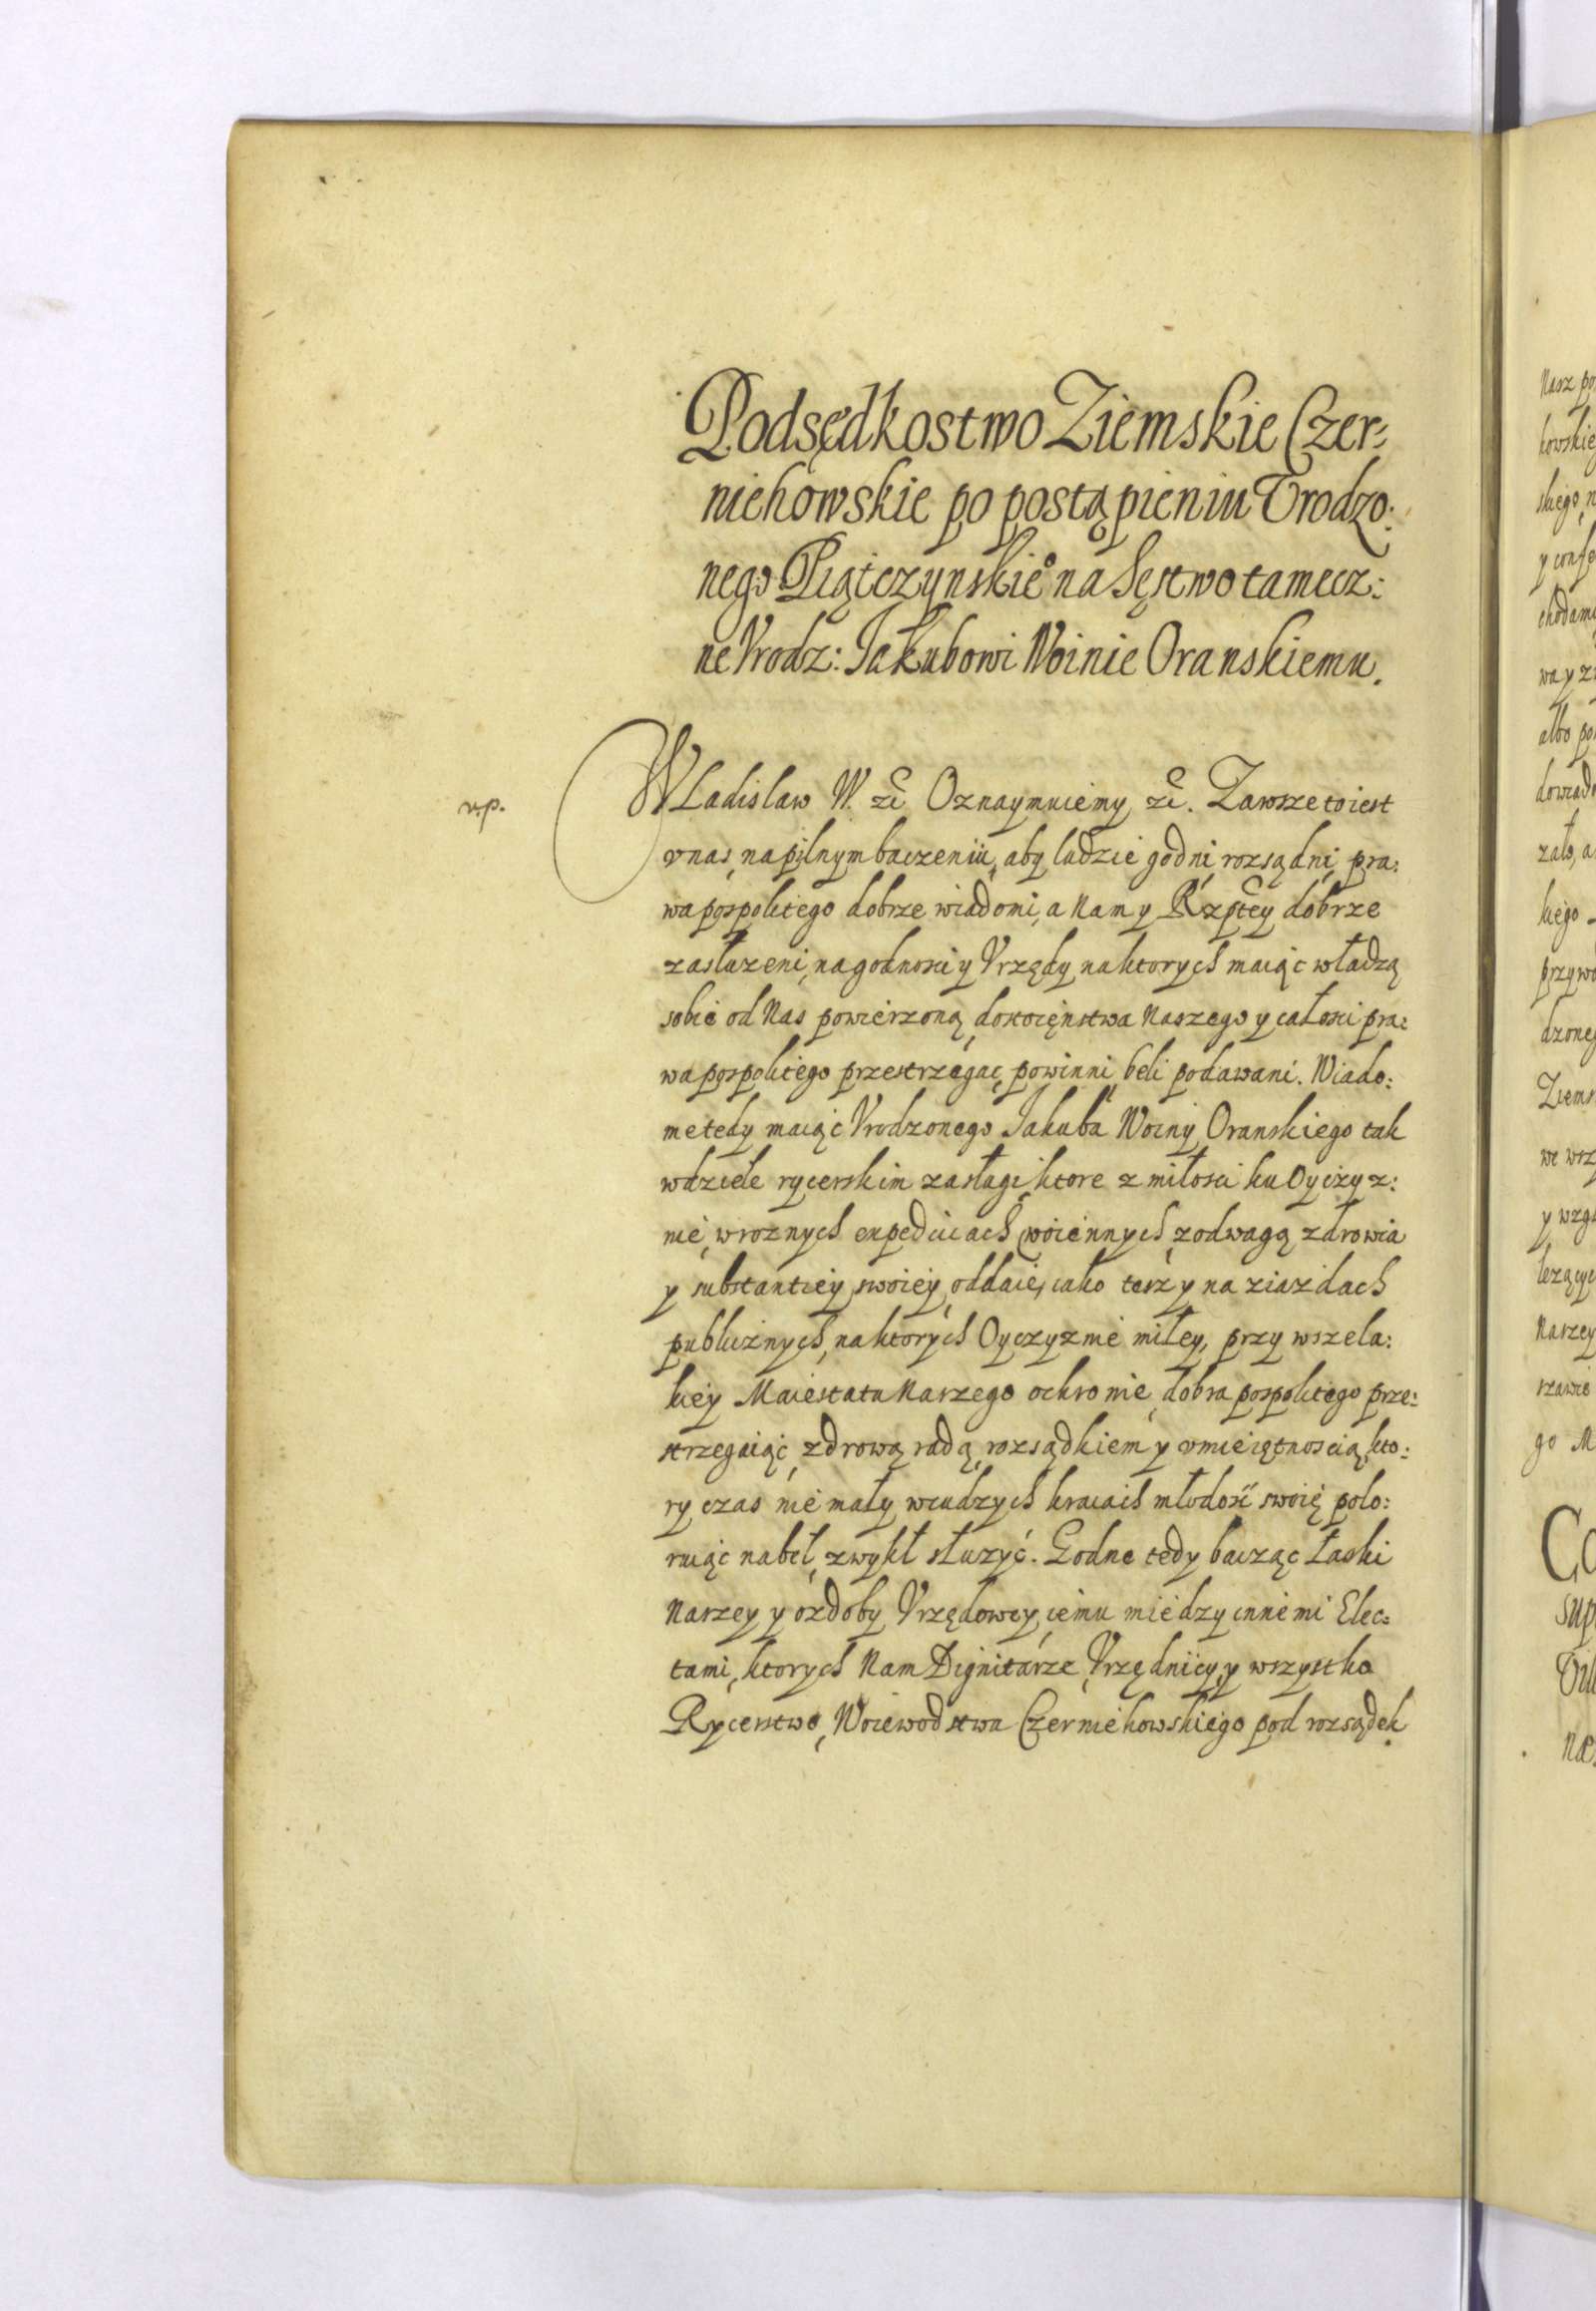 Podsędkostwo Ziemskie Czer:
niehowskie po postąpieniu Vrodzo:
nego Piątczynskie° na Sęstwo tamecz:
ne Vrodz: Jakubowi Woinie Oranskiemu.
v.p.
Wladislaw IV. etc Oznaymuiemy etc. Zawsze to iest
v nas, na pilnym baczeniu, aby ludzie godni, rozsądni, pra:
wa pospolitego dobrze wiadomi, a Nam y Rzptey dobrze
zasłuzeni, na godnosci y Vrzędy, na ktorych maiąc władzą
sobie od Nas powierzoną, dostoięnstwa Naszego y całosci pra:
wa pospolitego przestrzegac, powinni, beli podawani. Wiado:
me tedy maiąc Vrodzonego Jakuba Woiny Oranskiego tak
w dziele rycerskim zasługi, ktore z miłosci ku Oyczyz:
nie, w roznych expediciach woiennych, z odwagą zdrowia
y substantiey swoiey, oddaie, iako tesz y na ziazdach
publicznych, na ktorych Oyczyznie miłey, przy wszela:
kiey Maiestatu Naszego ochronie, dobra pospolitego prze:
strzegaiąc, zdrową radą, rozsądkiem y vmieiętnoscią, kto:
ry czas nie mały w cudzych kraiach młodosć swoię polo:
ruiąc nabeł, zwykł słuzyć. Godne tedy bacząc łaski
Naszey y ozdoby Vrzędowey, iemu miedzy innemi Elec:
tami, ktorych Nam Dignitarze, Vrzędnicy, y wszystko
Rycerstwo, Woiewodstwa Czerniehowskiego pod rozsądek
Nasz
kowskie
skiego
wa y
albo
zało, a
kiego
Ziems
we wsz
y wzg
Naszey
go M
Co
sup